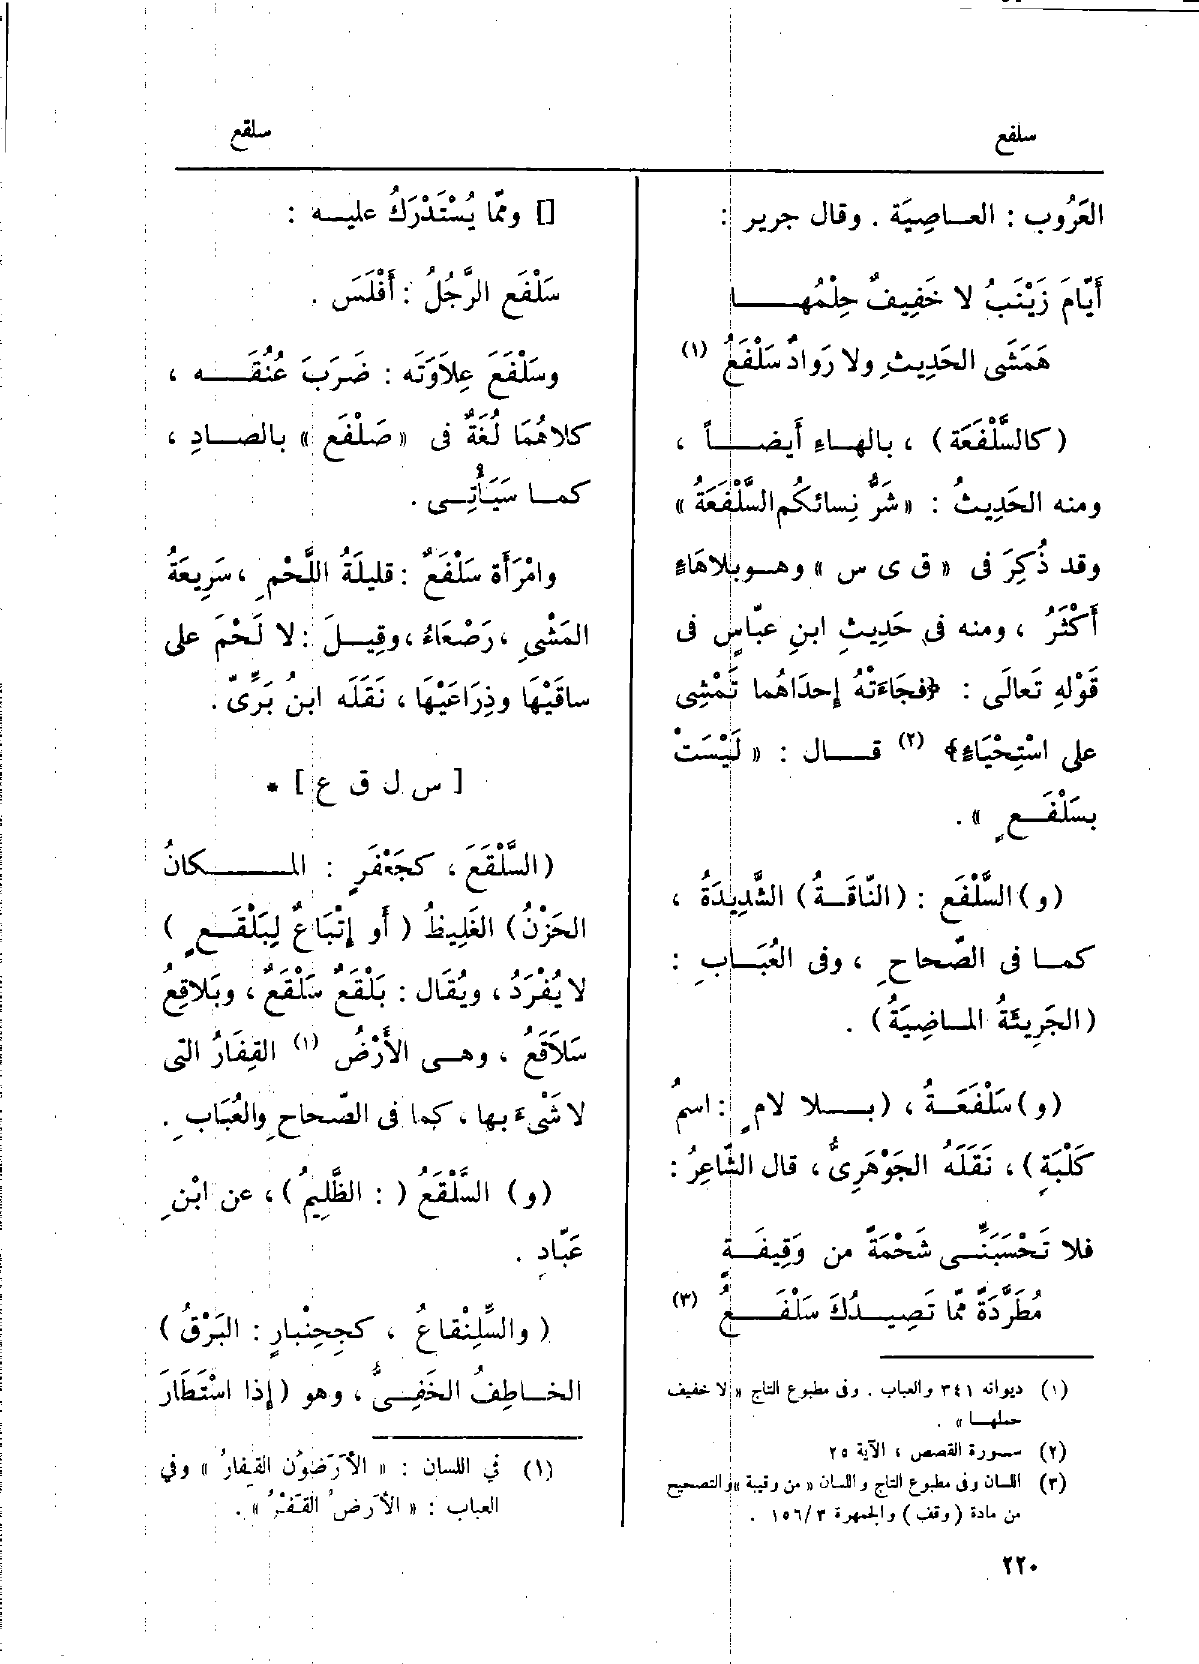 سلفع
سلقع
العَرُوب : العــاصِيَة . وقال جرير :
أَيّامَ زَيْنَبُ لا خَفِيفٌ حِلْمُهــــا
هَمَشَى الحَدِيثِ ولا رَوادٌ سَلْفَعُ (١)
(كالسَّلْفَعَة) ، بالهـاءِ أَيضــــاً ،
ومنه الحَدِيثُ : «شَرُّ نِسائكم السَّلْفَعَةُ»
وقد ذُكِرَ فى «ق ى س» وهــو بلاهَاءٍ
أَكْثَرُ ، ومنه فى حَدِيثِ ابنِ عبّاسٍ فى
قَوْلهِ تَعالَى : ﴿فجَاءَتْهُ إِحدَاهُما تَمْشِى
على اسْتِحْيَاءٍ﴾ (٢) قــــال : « لَيْسَتْ
بسَلْفَـــعٍ » .
(و) السَّلْفَع : (النّاقَــةُ) الشَّدِيدَةُ ،
كمــا فى الصّحاحِ ، وفى العُبَــابِ :
(الجَرِيئَةُ المـاضِيَةُ) .
(و) سَلْفَعَــةُ ، (بـــلا لامٍ : اسمُ
كَلْبَةٍ) ، نَقَلَهُ الجَوْهَرِىُّ ، قال الشّاعِرُ :
فلا تَحْسَبَنِّــى شَحْمَةً من وَقِيفَــةٍ
مُطَرَّدَةً ممّا تَصِيــدُكَ سَلْفَـــعُ (٣)
(١) ديوانه ٣٤١ والعباب . وفى مطبوع التاج «لا خفيف
حملهــا » .
(٢) ســورة القصص ، الآية ٢٥
(٣) اللسان وفى مطبوع التاج واللسان « من رقيبة » والتصحيح
من مادة (وقف) والجمهرة ١٥٦/٣ .
٢٢٠
[] وممّا يُسْتَدْرَكُ عليــه :
سَلْفَع الرَّجُلُ : أَفْلَسَ .
وسَلْفَعَ عِلاَوَتَه : ضَرَبَ عُنُقَــــه ،
كلاهُمَا لُغَةٌ فى «صَلْفَع» بالصــادِ ،
كمــا سَيَأْتِــى .
وامْرَأَة سَلْفَعٌ : قليلَةُ اللَّحْمِ ، سَرِيعَةُ
المَشْىِ ، رَصْعَاءُ ، وقِيــلَ : لا لَحْمَ على
ساقَيْهَا وذِرَاعَيْهَا ، نَقَلَه ابنُ بَرِّىّ .
[ س ل ق ع ] *
(السَّلْقَعَ ، كجَعْفَرٍ : المــــــكانُ
الحَزْنُ) الغَلِيظُ (أَو إِتْبَاعٌ لِبَلْقَــعٍ)
لا يُفْرَدُ ، ويُقَال : بَلْقَعٌ سَلْقَعٌ ، وبَلاقِعُ
سَلاَقعُ ، وهــى الأَرْضُ (١) القِفَارُ التى
لا شَىْءَ بها ، كما فى الصّحاحِ والعُبَابِ .
(و) السَّلْقَعُ ( : الظَّلِيمُ) ، عن ابْنِ
عَبّادٍ .
(والسِّلِنْقاعُ ، كجِحِنْبارٍ : البَرْقُ)
الخــاطِفُ الخَفِــىُّ ، وهو (إِذا اسْتَطَارَ
(١) في اللسان : « الأَرَضُوْن القِيفارُ » وفي
العباب : « الأَرضُ القَفْرُ » .